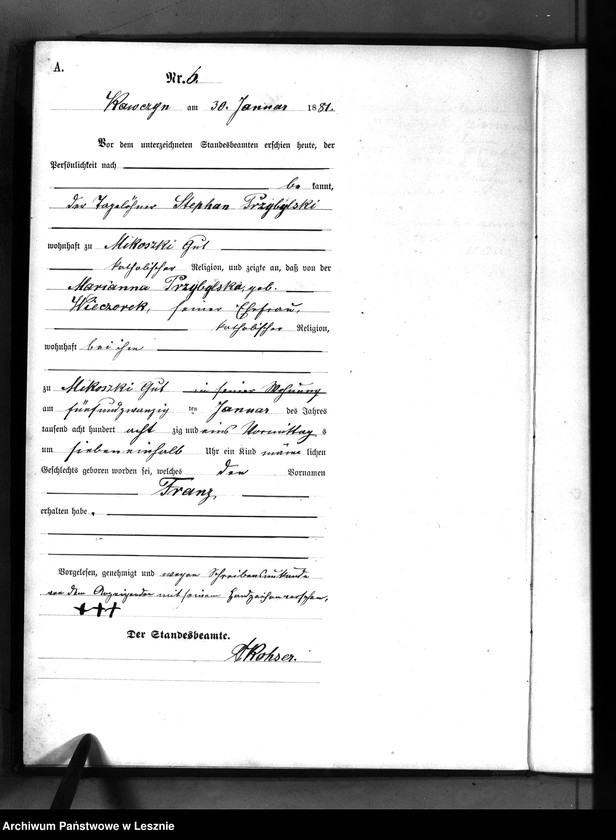 A.
Nr. 6.
Kawczyn am 30. Januar 1881.
Vor dem unterzeichneten Standesbeamten erschien heute, der
Persönlichkeit nach
be kannt,
der Tagelöhner Stephan Przybylski
wohnhaft zu Mikoszki Gut
katholischer Religion, und zeigte an, daß von der
Marianna Przybylska, geb.
Wieczorek, seiner Ehefrau,
katholischer Religion,
wohnhaft bei ihm
zu Mikoszki Gut in seiner Wohnung
am fünfundzwanzig ten Januar des Jahres
tausend acht hundert acht zig und eins Vormittag s
um sieben einhalb Uhr ein Kind männ lichen
Geschlechts geboren worden sei, welches den Vornamen
Franz
erhalten habe.
Vorgelesen, genehmigt und wegen Schreibensunkunde
von dem Anzeigenden mit seinem Handzeichen versehen.
+++
Der Standesbeamte.
Archiwum Państwowe w Lesznie